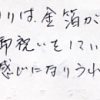 りは、金箔が
御祝いをしてい
感じになりうれ